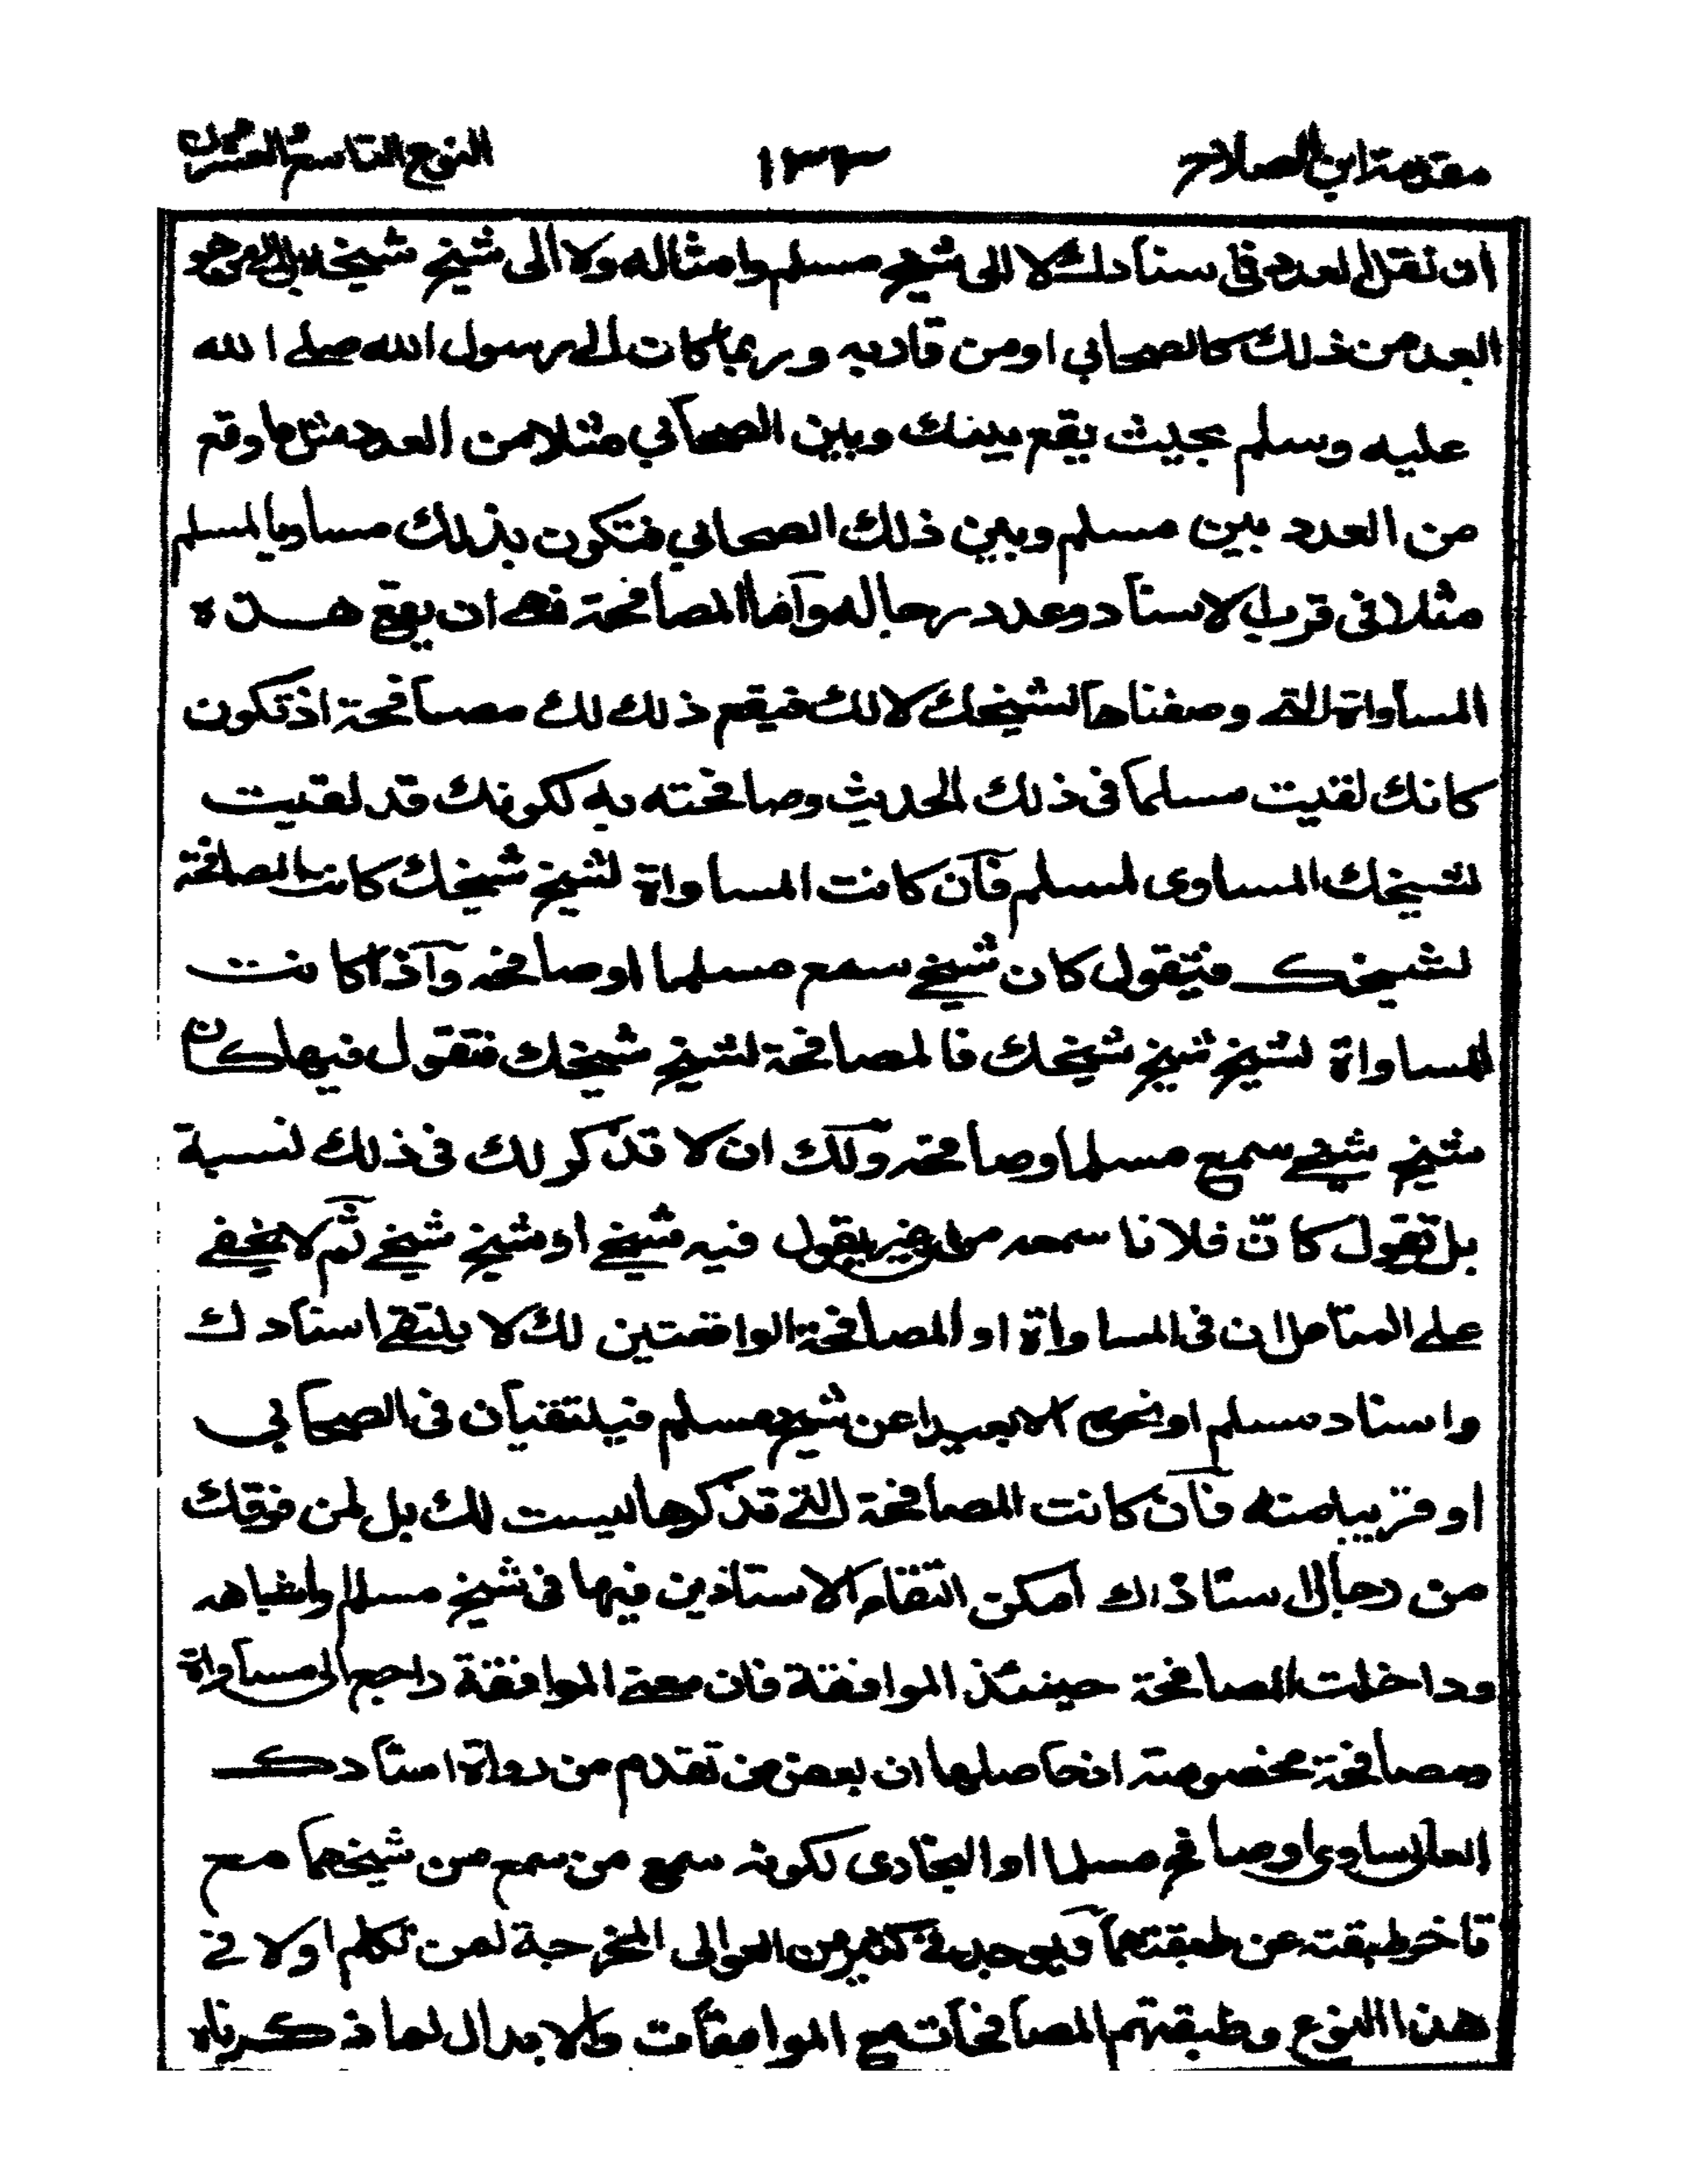 مقدمة ابن الصلاح ١٣٣ النوع التاسع والعشرون
ان نقل العدد فى اسنادك لا الى شيخ مسلم وامثاله ولا الى شيخ شيخه بل الى من هو
ابعد من ذلك كالصحابي او من قاربه وربما كان الى رسول الله صلے الله
عليه وسلم بحيث يقع بينك وبين الصحابي مثلا من العدد مثل ما وقع
من العدد بين مسلم وبين ذلك الصحابي فتكون بذلك مساويا لمسلم
مثلا فى قرب الاسناد وعدد رجاله وآما المصافحة فهے ان يقع هذه
المساواة التے وصفناها لشيخك لا لك فيقع ذلك لك مصافحة اذ تكون
كانك لقيت مسلما فى ذلك الحديث وصافحته به لكونك قد لقيت
لشيخك المساوى لمسلم فآن كانت المساواة لشيخ شيخك كانت المصافحة
لشيخك فتقول كان شيخے سمع مسلما او صافحه وآذا كانت
المساواة لشيخ شيخ شيخك فالمصافحة لشيخ شيخك فتقول فيها كان
شيخ شيخے سمع مسلما وصافحه ولك ان لا تذكر لك فى ذلك نسبة
بل تقول كانّ فلانا سمعه من غير يقول فيه شيخے او شيخ شيخے ثم لا يخفے
علے المتأمل ان فى المساواة او المصافحة الواقعتين لك لا يلتقے اسنادك
واسناد مسلم او نحوه الا بعيدا عن شيخ مسلم فيلتقيان فى الصحابي
او قريبا منه فآن كانت المصافحة التے تذكرها ليست لك بل لمن فوقك
من رجال اسنادك أمكن التقاء الاستاذين فيها فى شيخ مسلم واشباهه
وداخلت المصافحة حينئذ الموافقة فان معنے الموافقة راجع الى مساواة
ومصافحة مخصوصة اذ حاصلها ان بعض من تقدم من رواة اسنادك
العالى ساوى او صافح مسلما او البخارى لكونه سمع من سمع من شيخهما مع
تأخر طبقته عن طبقتهما ويوجد فے كثير من العوالى المخرجة لمن تكلم اولا فے
هذا النوع وطبقتهم المصافحات مع الموافقات والابدال لما ذكرناه